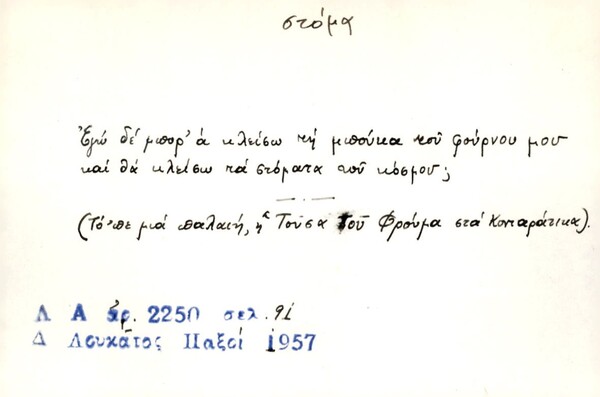 στόμα
Ἐγώ δέ μπορ' ά κλείσω τή μπούκα τοῦ φούρνου μου
καί θά κλείσω τά στόματα τοῦ κόσμου;
(Τό 'πε μιά παλαιή, ἡ Τούσα τοῦ Φρούμα στά Κονταράτικα).
Λ Α ἀρ. 2250 σελ. 91
Δ Λουκᾶτος Παξοί 1957